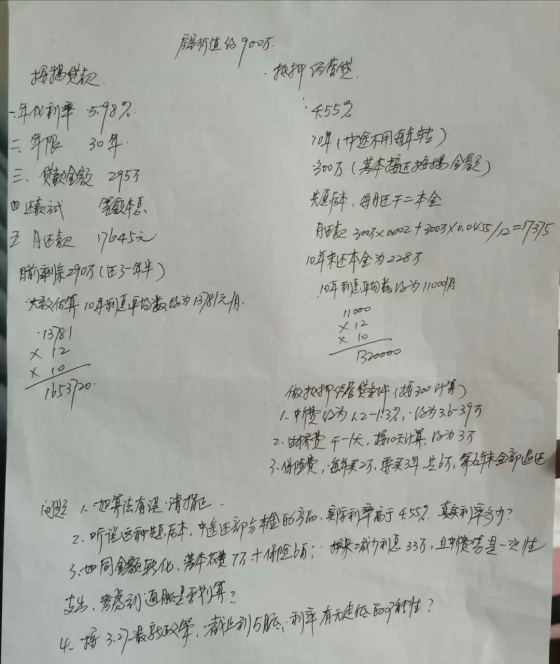 房屋价值约900万.
按揭贷款
一.年化利率 5.98%
二、年限 30年
三、贷款金额 295万
四 还款方式 等额本息
五 月还款 17645元
目前剩余290万(还了一年半)
大致估算10年利息平均数约为13781元/月.
13781
× 12
× 10
1653720.
抵押经营贷
4.55%
10年(中途不用每年转)
300万(基本接近按揭金额)
先息后本,每月还千二本金
月还款 300万×0.002+300万×0.0455/12=17375
10年末还本金为228万
10年利息平均数约为11000/月
11000
× 12
× 10
1320000
做抵押经营贷条件(按300计算)
1.中费约为1.2-1.3%,约为3.6-39万
2.费千一/天,按10天计算,约为3万
3.保险费,每年买2万,要买3年,共6万,第6年末全部退还
问题 1.如算法有误请指正.
2.听说这种先息后本,中途还部分本金的产品,实际利率高于4.55%.真实利率多少?
3.如同金额转化,基本花费7万+保险6万;换来减少利息33万,且中费等是一次性
支出,考虑到通胀是否划算?
4.按3.27最新政策,利率有无走低的可能性?